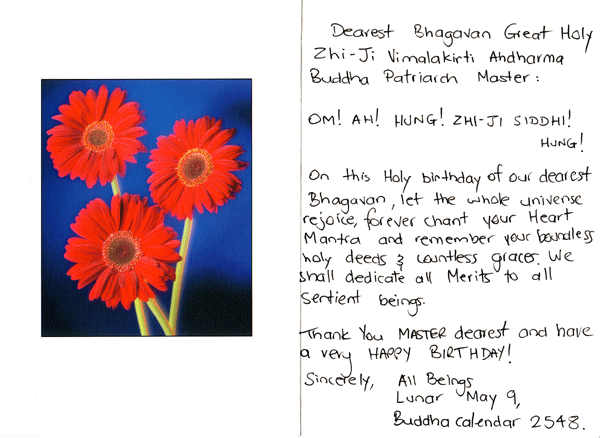 Dearest Bhagavan Great Holy
Zhi-Ji Vimalakirti Ahdharma
Buddha Patriarch Master:
OM! AH! HUNG! ZHI-JI SIDDHI!
HUNG!
On this Holy birthday of our dearest
Bhagavan, let the whole universe
rejoice, forever chant your Heart
Mantra and remember your boundless
holy deeds & countless graces. We
shall dedicate all Merits to all
Sentient beings.
Thank You MASTER dearest and have
a very HAPPY BIRTHDAY!
Sincerely, All Beings
Lunar May 9,
Buddha Calendar 2548.